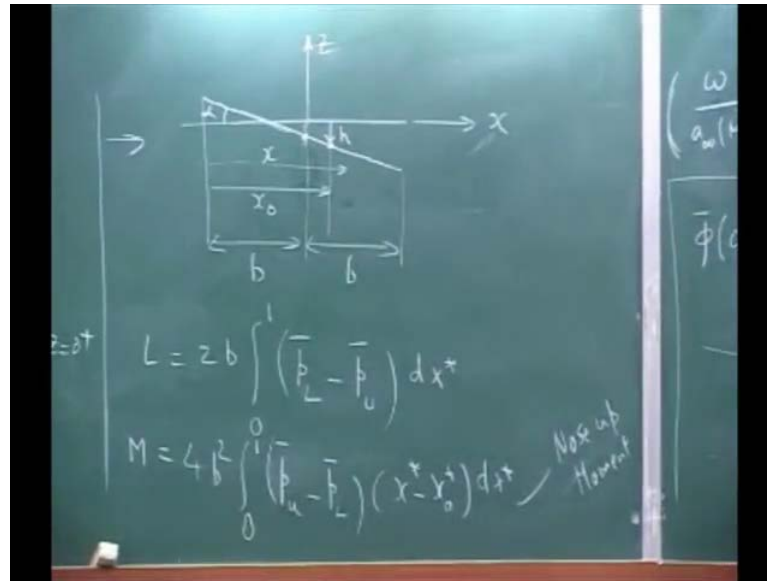 z
α
h
x
x
x₀
b b
z=0⁺
L = 2b ∫₀¹ (p̄_L − p̄_u) dx*
M = 4b² ∫₀¹ (p̄_u − p̄_L)(x* − x₀*) dx*
Nose up
Moment
ω
a∞(M
φ̄(